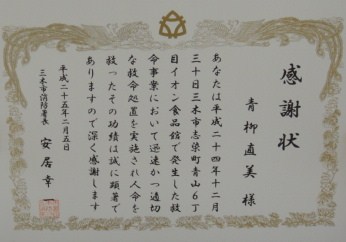 感謝状
青柳直美様
あなたは平成二十四年十二月
三十日三木市志染町青山６丁
目イオン食品館で発生した救
命事案において迅速かつ適切
な救命処置を実施され人命を
救ったその功績は誠に顕著で
ありますので深く感謝します
平成二十五年二月五日
三木市消防署長 安居幸一